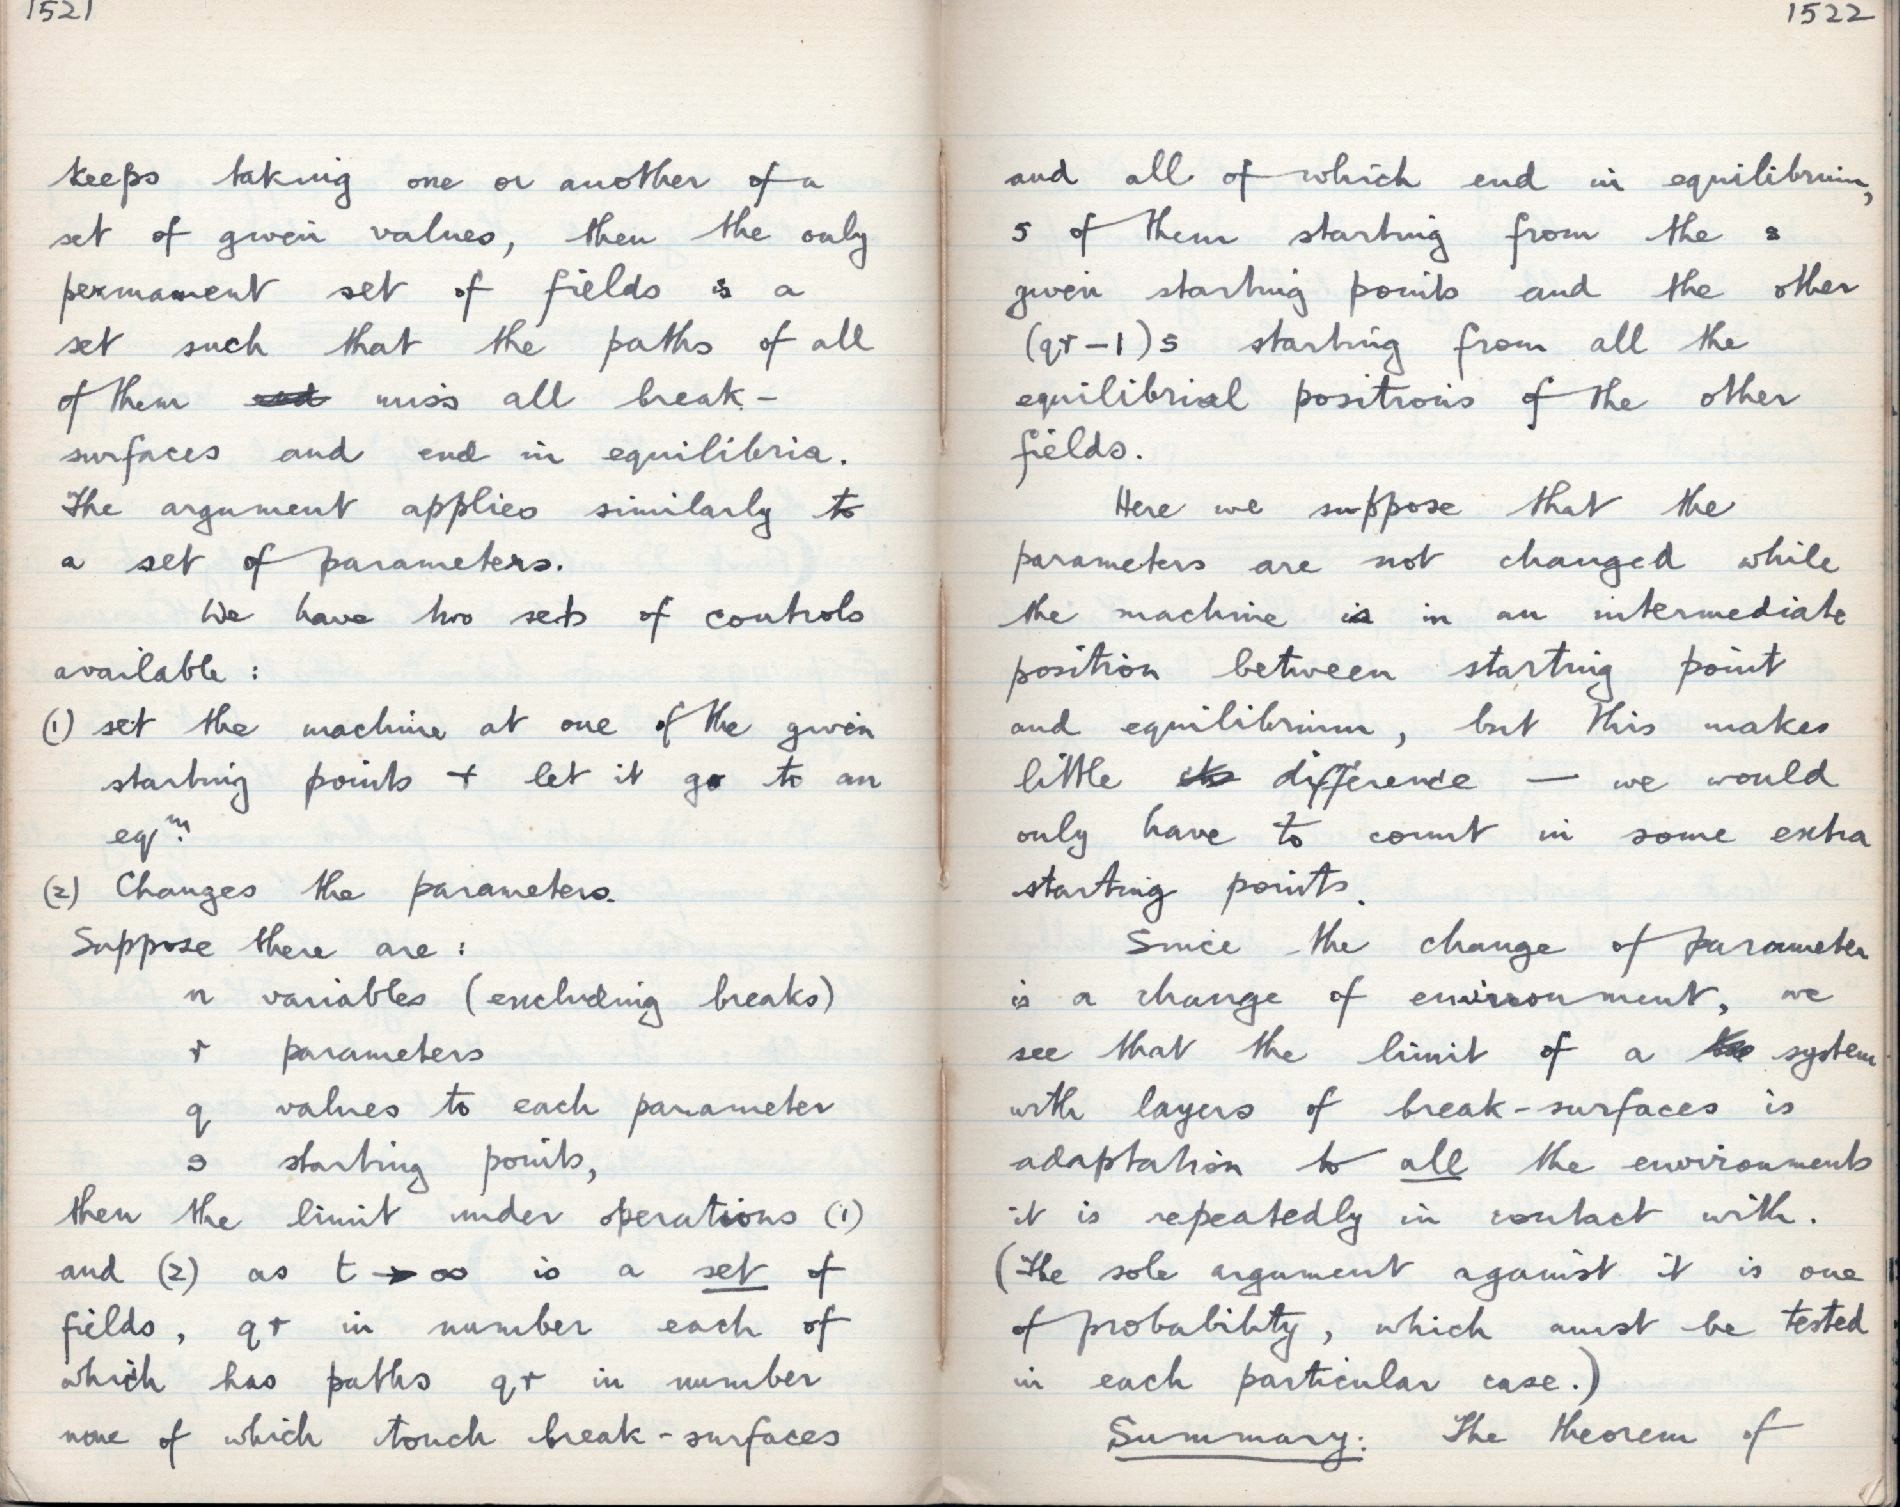 1521
keeps taking one or another of a
set of given values, then the only
permament set of fields is a
set such that the paths of all
of them miss all break-
surfaces and end in equilibria.
The argument applies similarly to
a set of parameters.
We have two sets of controls
available :
(1) set the machine at one of the given
starting points + let it go to an
eqᵐ.
(2) Changes the parameters.
Suppose there are :
n variables (excluding breaks)
r parameters
q values to each parameter
s starting points,
then the limit under operations (1)
and (2) as t → ∞ is a set of
fields, qr in number each of
which has paths qr in number
none of which touch break-surfaces
1522
and all of which end in equilibrium,
s of them starting from the s
given starting points and the other
(qr-1)s starting from all the
equilibrial positions of the other
fields.
Here we suppose that the
parameters are not changed while
the machine is in an intermediate
position between starting point
and equilibrium, but this makes
little difference — we would
only have to count in some extra
starting points.
Since the change of parameter
is a change of environment, we
see that the limit of a system
with layers of break-surfaces is
adaptation to all the environments
it is repeatedly in contact with.
(The sole argument against it is one
of probability, which must be tested
in each particular case.)
Summary: The theorem of